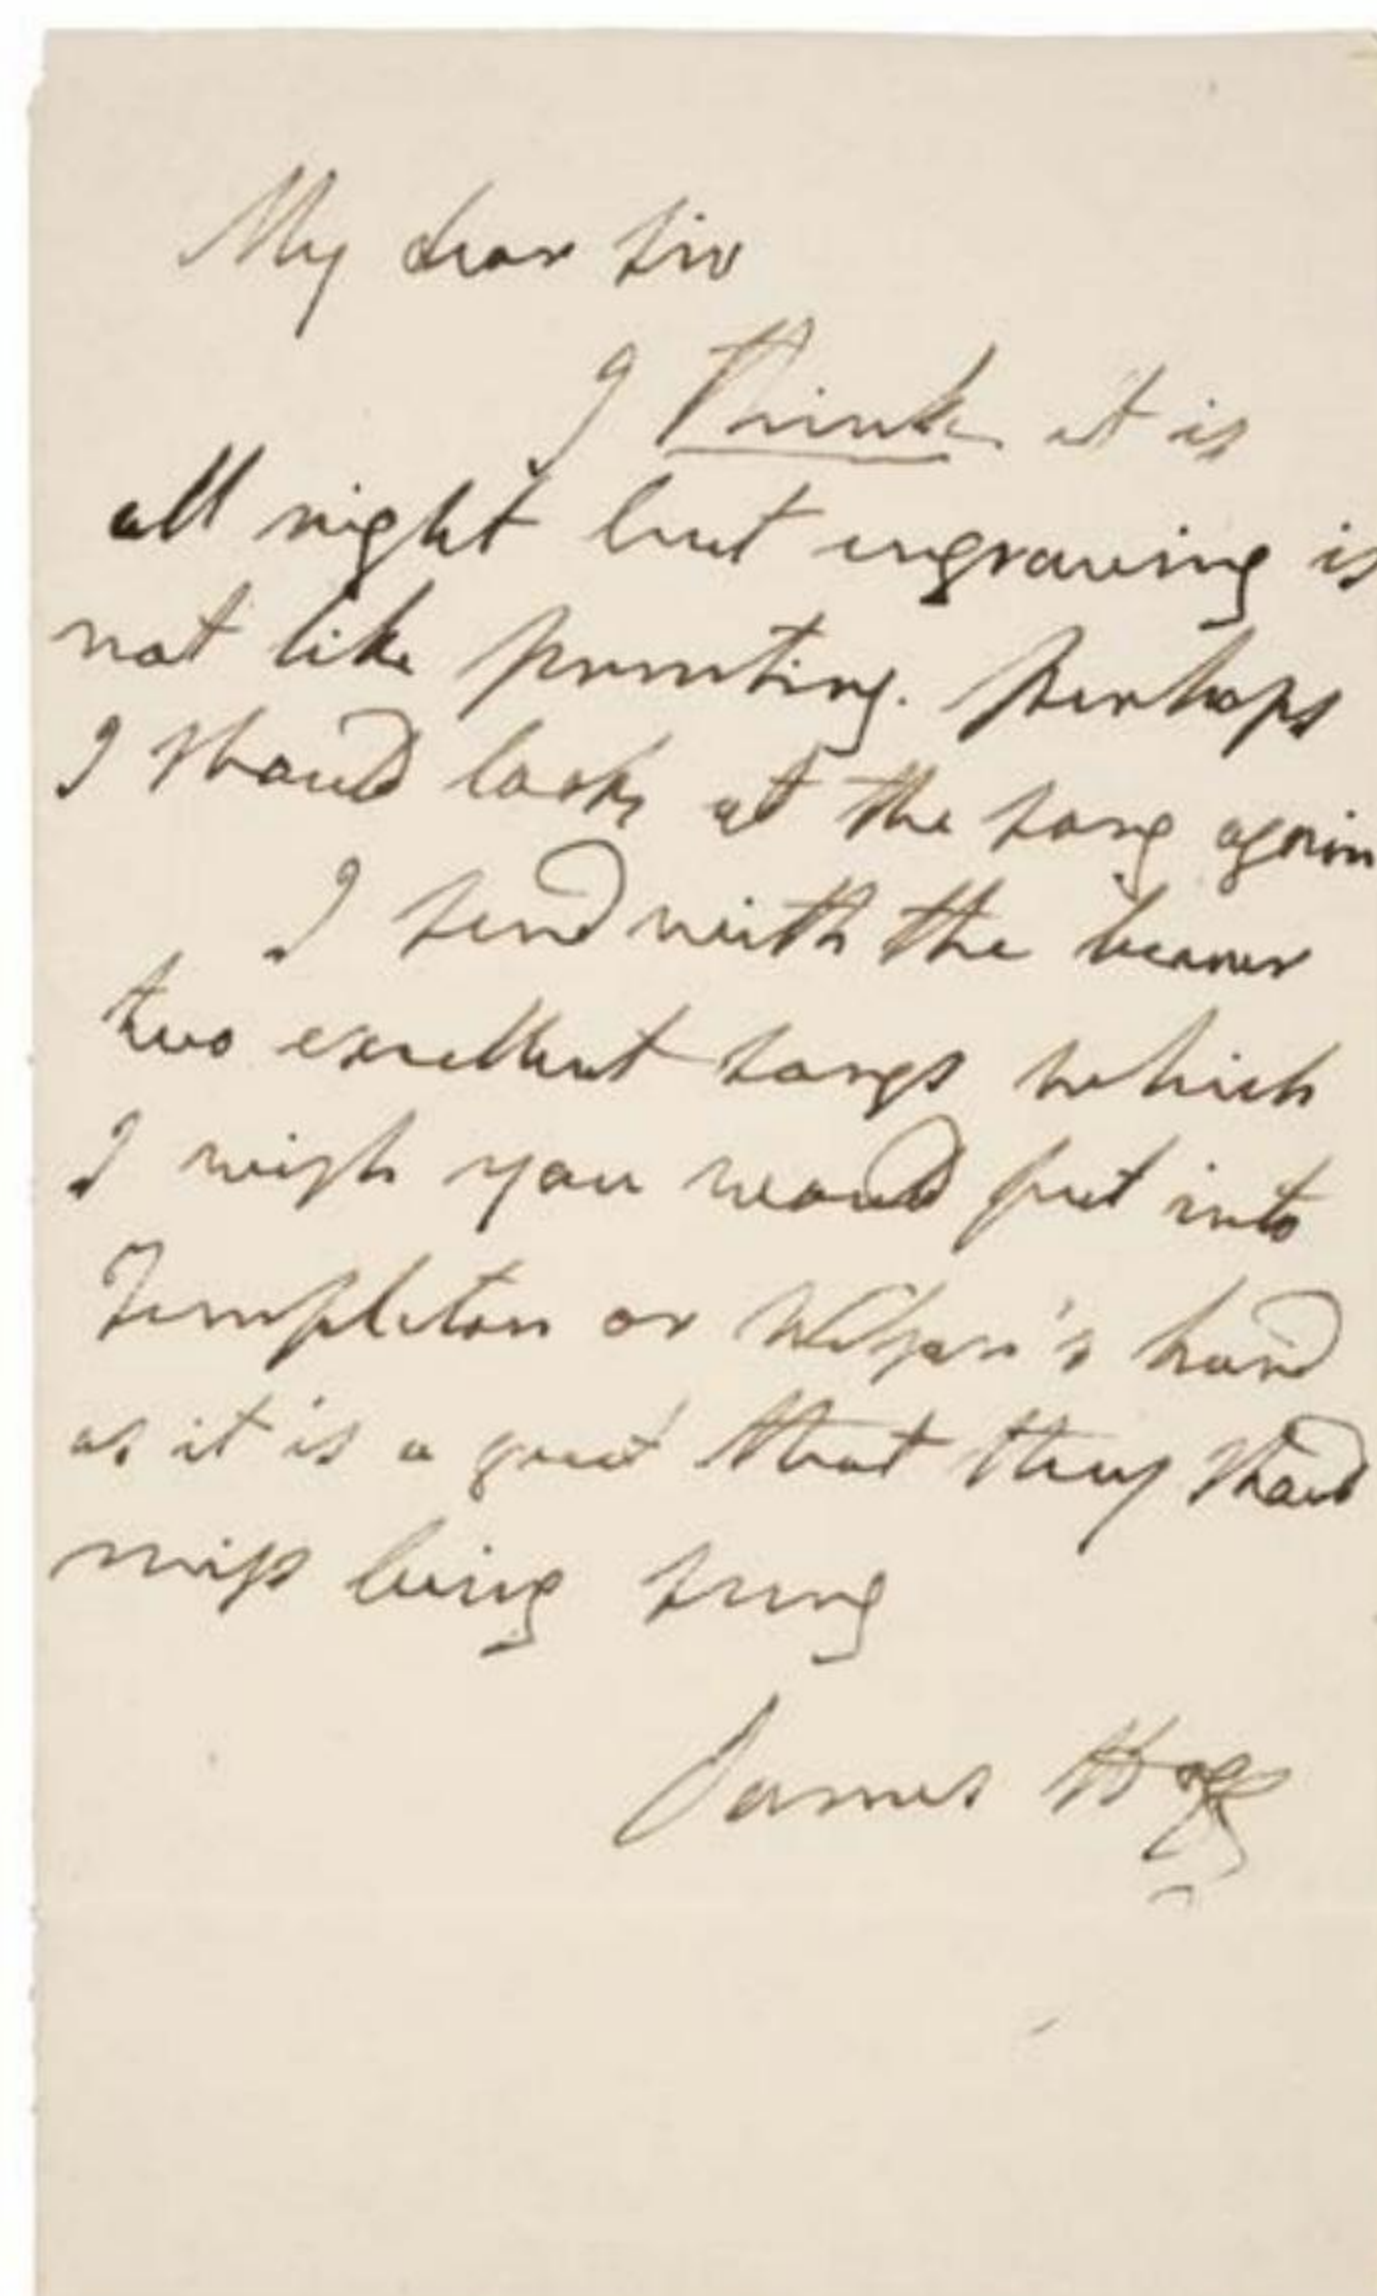 My dear Sir
I think it is
all right but engraving is
not like printing. Perhaps
I should look at the song again
I send with the bearer
two excellent songs which
I wish you would put into
Templeton or Wilson's hand
as it is a great that they should
miss being sung
James Hogg